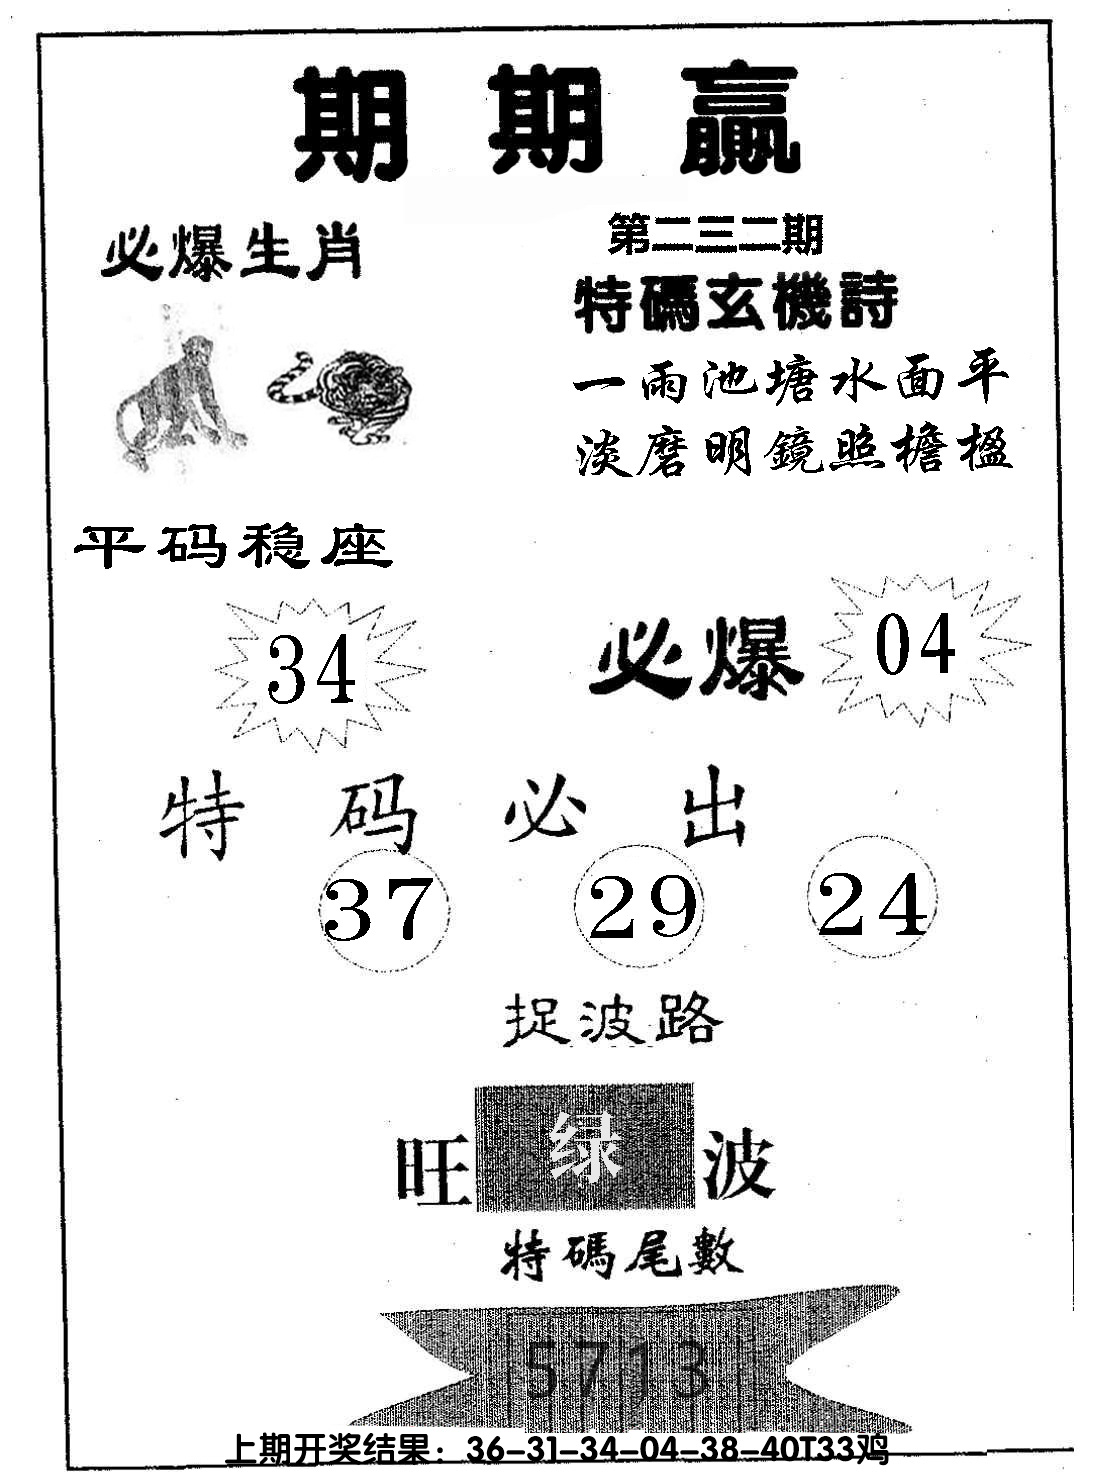 期期赢
必爆生肖
第二三二期
特碼玄機詩
一雨池塘水面平
淡磨明鏡照檐楹
平码稳座
34
必爆 04
特码必出
37 29 24
捉波路
旺 绿 波
特碼尾數
5713
上期开奖结果：36-31-34-04-38-40T33鸡